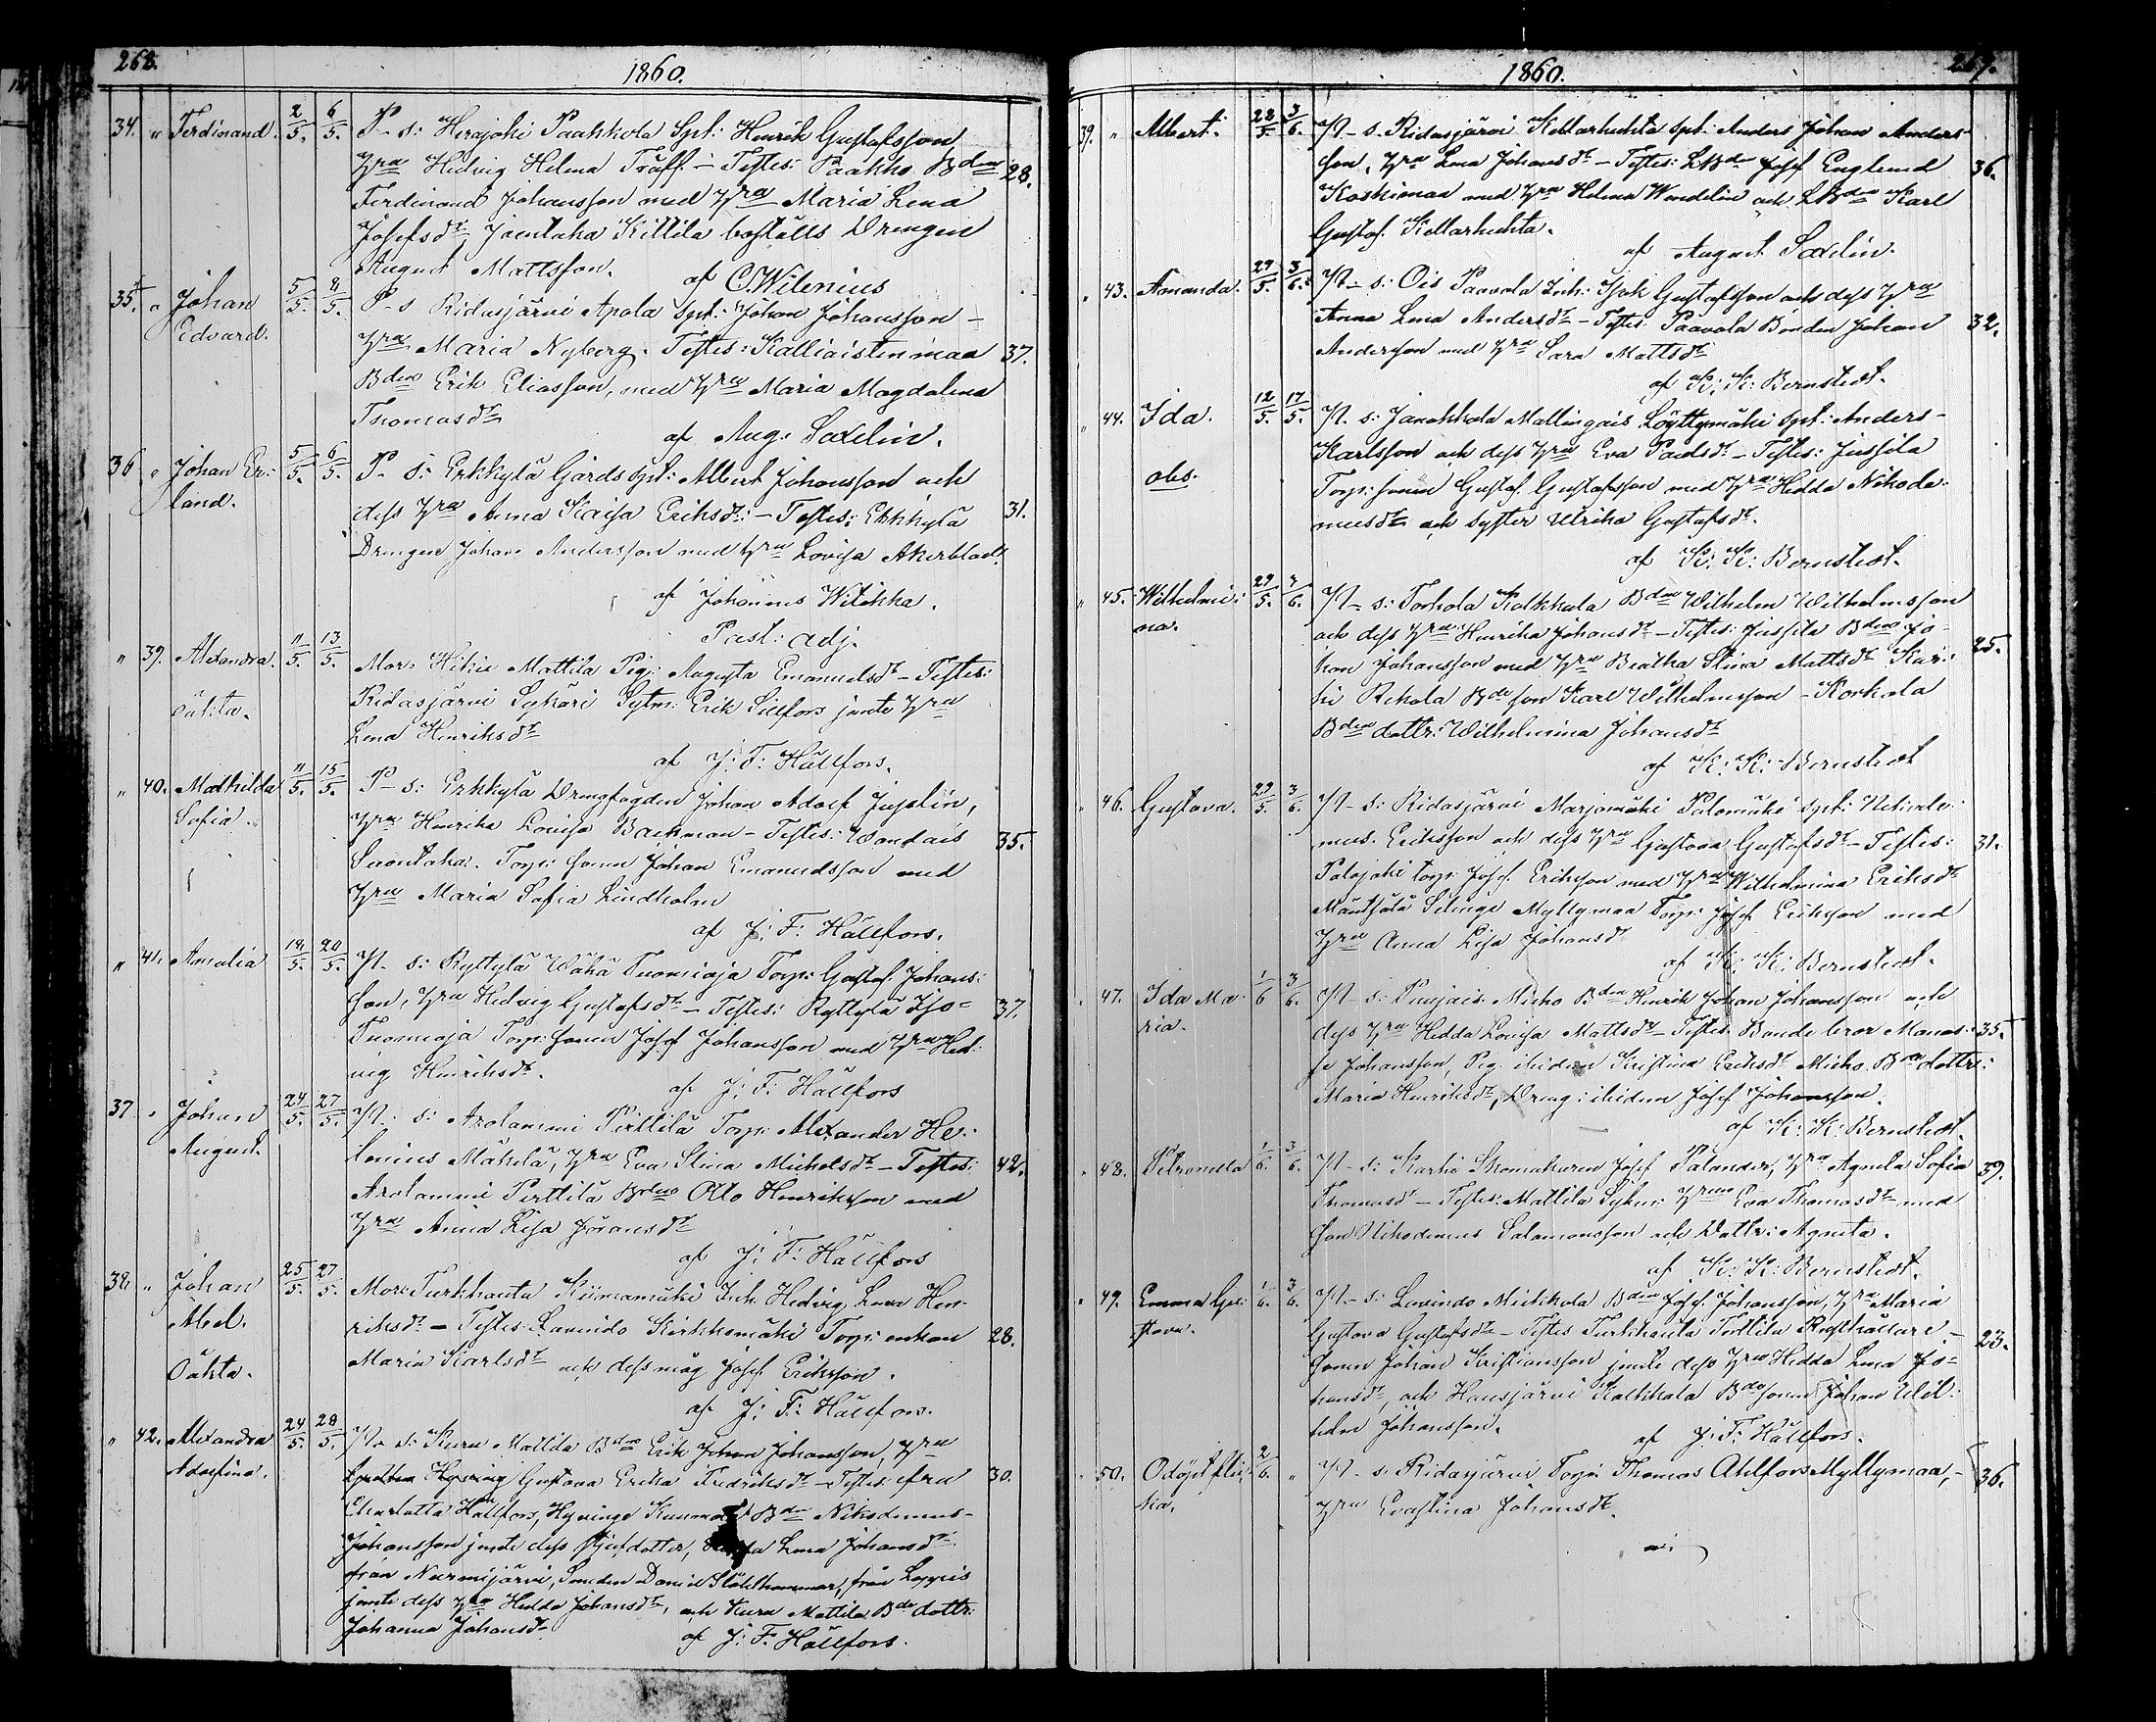 268.
1860.
34. " Ferdinand. 2/5. 6/5. P- s: Herajoki Paakkola Spt: Henrik Gustafsson
Hru Hedvig Helena Träff. - Testes: Paakko Bden 28.
Ferdinand Johansson med Hru Maria Lena
Josefsdr, Kittilä boställs Drengen
August Mattsson. af C. Wilenius
35. " Johan 5/5. 8/5. P- s Ridasjärvi Apola Spt: Johan Johansson -
Edvard. Hru Maria Nyberg. Testes: Kalliaistenmaa 37.
Bden Erik Eliasson, med Hru Maria Magdalena
Thomasdr
af Aug: Saxelin.
36 " Johan Er: 5/5. 6/5. P- s: Erkkylä Gårds Spt: Albert Johansson och
land. dess Hru Anna Kaisa Eriksdr: - Testes: Erkkylä 31.
Drengen Johan Andersson med Hru Lovisa Akerblad.
af Johannes Witikka.
Past: adj.
" 39. Alexandra. 11/5. 13/5. Mor: Hikie Mattila Pig: Augusta Emanuelsdr - Testes:
oäkta. Ridasjärvi Sykäri Sytm: Erik Silfors jemte Hru
Lena Henriksdr
af J: F: Hällfors.
" 40. Mathilda 11/5. 15/5. P- s: Erkkylä Drengfogden Johan Adolf Juselin,
Sofia. Hru Henrika Lovisa Backman - Testes: Wandais 35.
Torp: sonen Johan Emanuelsson med
Hru Maria Sofia Lindholm
af J: F: Hällfors.
" 41. Amalia 14/5. 20/5. P- s: Ryttylä Wähä Tuomioja Torp: Gustaf Johans:
son, Hru Hedvig Gustafsdr - Testes: Ryttylä Iso- 37.
Tuomioja Torp: sonen Josef Johansson med Hru Hed:
vig Henriksdr.
af J: F: Hällfors
37. " Johan 24/5. 27/5. P- s: Arolammi Pirttilä Torp: Alexander He:
August. lenius Mäkelä, Hru Eva Stina Michelsdr - Testes: 42.
Arolammi Perttilä Bden Otto Henriksson med
Hru Anna Lisa Göransdr
af J: F: Hällfors
38. " Johan 25/5. 27/5. Mor: Turkhauta Kiimamäki Inh. Hedvig Lena Hen
Abel. riksdr - Testes: Lavindo Kirkkomäki Torp: enkan 28.
Oäkta. Maria Karlsdr och dess måg Josef Eriksson.
af J: F: Hällfors.
" 42. Alexandra 24/5. 28/5. P- s: Kuru Mattila Bden Erik Johansson, Hru
Adolfina. Gustava Erika Fredriksdr - Testes: fru 30.
Charlotta Hällfors, Hyvinge Bden Nikodemus-
Johansson jemte dess Lena Johansdr
från Nurmijärvi, Smeden Daniel Stålhammar, från Loppis
jemte dess Hru Hedda Johansdr, och Kuru Mattila Bde dottr:
Johanna Johansdr.
af J: F: Hällfors.
269.
1860.
39. " Albert. 28/5. 3/6. P- s. Ridasjärvi Kellarhuhta Spt: Anders Johan Anders-
son, Hru Lena Johansdr - Testes: Josef Englund 36.
Koskimaa med Hru Helena Wendelin och Karl
Gustaf Kellarhuhta.
af August Saxelin.
" 43. Amanda. 29/5. 3/6. P- s: Ois Paavola Inh: Isak Gustafsson och dess Hru
Anna Lena Andersdr - Testes: Paavola Bonden Johan 32.
Andersson med Hru Sara Mattsdr
af K: K: Bernstedt.
" 44. Ida. 12/5. 17/5. P- s: Janakkala Mallingais Löyttymäki Spt: Anders-
Karlsson och dess Hru Eva Paulsdr - Testes: Jussila
obs. Torp: sonen Gustaf Gustafsson med Hru Hedda Nikode:
musdr och syster Ulrika Gustafsdr.
af K: K: Bernstedt.
" 45. Wilhelmi: 29/5. 7/6. P- s: Torhola Kolkkala Bden Wilhelm Wilhelmsson
na. och dess Hru Henrika Johansdr - Testes: Jussila Bden Jo- 25.
han Johansson med Hru Beatha Stina Mattsdr Kar:
hi Rekola Bde son Karl Wilhelmsson - Korkala
Bden dottr: Wilhelmina Johansdr
af K: K: Bernstedt
" 46. Gustava. 29/5. 3/6. P- s: Ridasjärvi Marjomäki Palomäki Spt: Nikode:
mus. Eriksson och dess Hru Gustava Gustafsdr - Testes: 31.
Palojoki torp: Josef Eriksson med Hru Wilhelmina Eriksdr
Mäntsälä Sälinge Myllymaa Torp: Josef Eriksson med
Hru Anna Lisa Johansdr
af K: K: Bernstedt.
" 47. Ida Ma: 1/6 3/6. P- s: Puujais Micko Bden Henrik Johan Johansson och
ria. dess Hru Hedda Lovisa Mattsdr Testes. Bonde bror Manas- 35.
se Johansson, Pig: ibidem Kristina Eriksdr Micko Bden dottr:
Maria Henriksdr, Dreng: ibidem Josef Johansson.
af K: K: Bernstedt.
" 48. Petronella 1/6. 3/6. P- s: Karhi Skomakaren Josef Palander, Hru Agneta Sofia 39.
Thomasdr - Testes: Mattila Sytm: Hrun Eva Thomasdr med
Son Nikodemus Salamonsson och Dottr: Agneta.
af K: K: Bernstedt.
" 49. Emma Gu: 1/6. 3/6. P- s: Lavindo Mikkola Bden Josef Johansson, Hru Maria
stava. Gustava Gustafsdr - Testes Turkhauta Torttila Rusthållare- 23.
sonen Johan Kristiansson jemte dess Hru Hedda Lena Jo-
hansdr, och Hausjärvi Kolkkala Bdesonen Johan Wil:
helm Johansson.
af J: F: Hällfors.
" 50. Odöpt flic: 2/6. " P- s Ridasjärvi Torp: Thomas Ahlfors Myllymaa, - 36.
ka. Hru Evastina Johansdr.